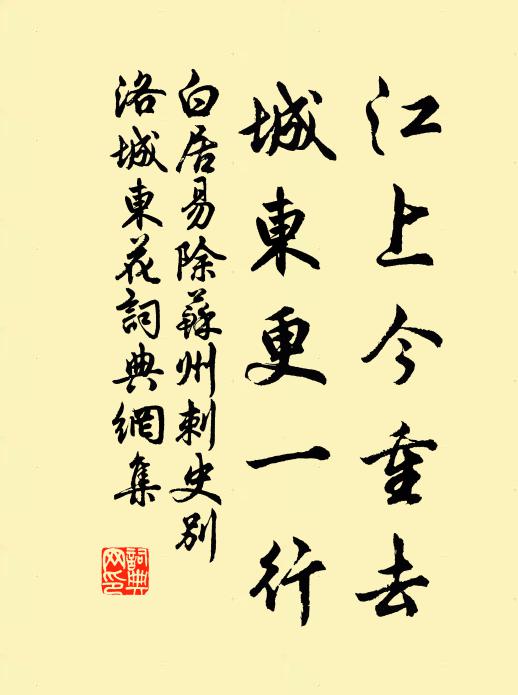 江上今重去
城東更一行
白居易除蘇州刺史別
洛城東花詞典網集
詞典网印